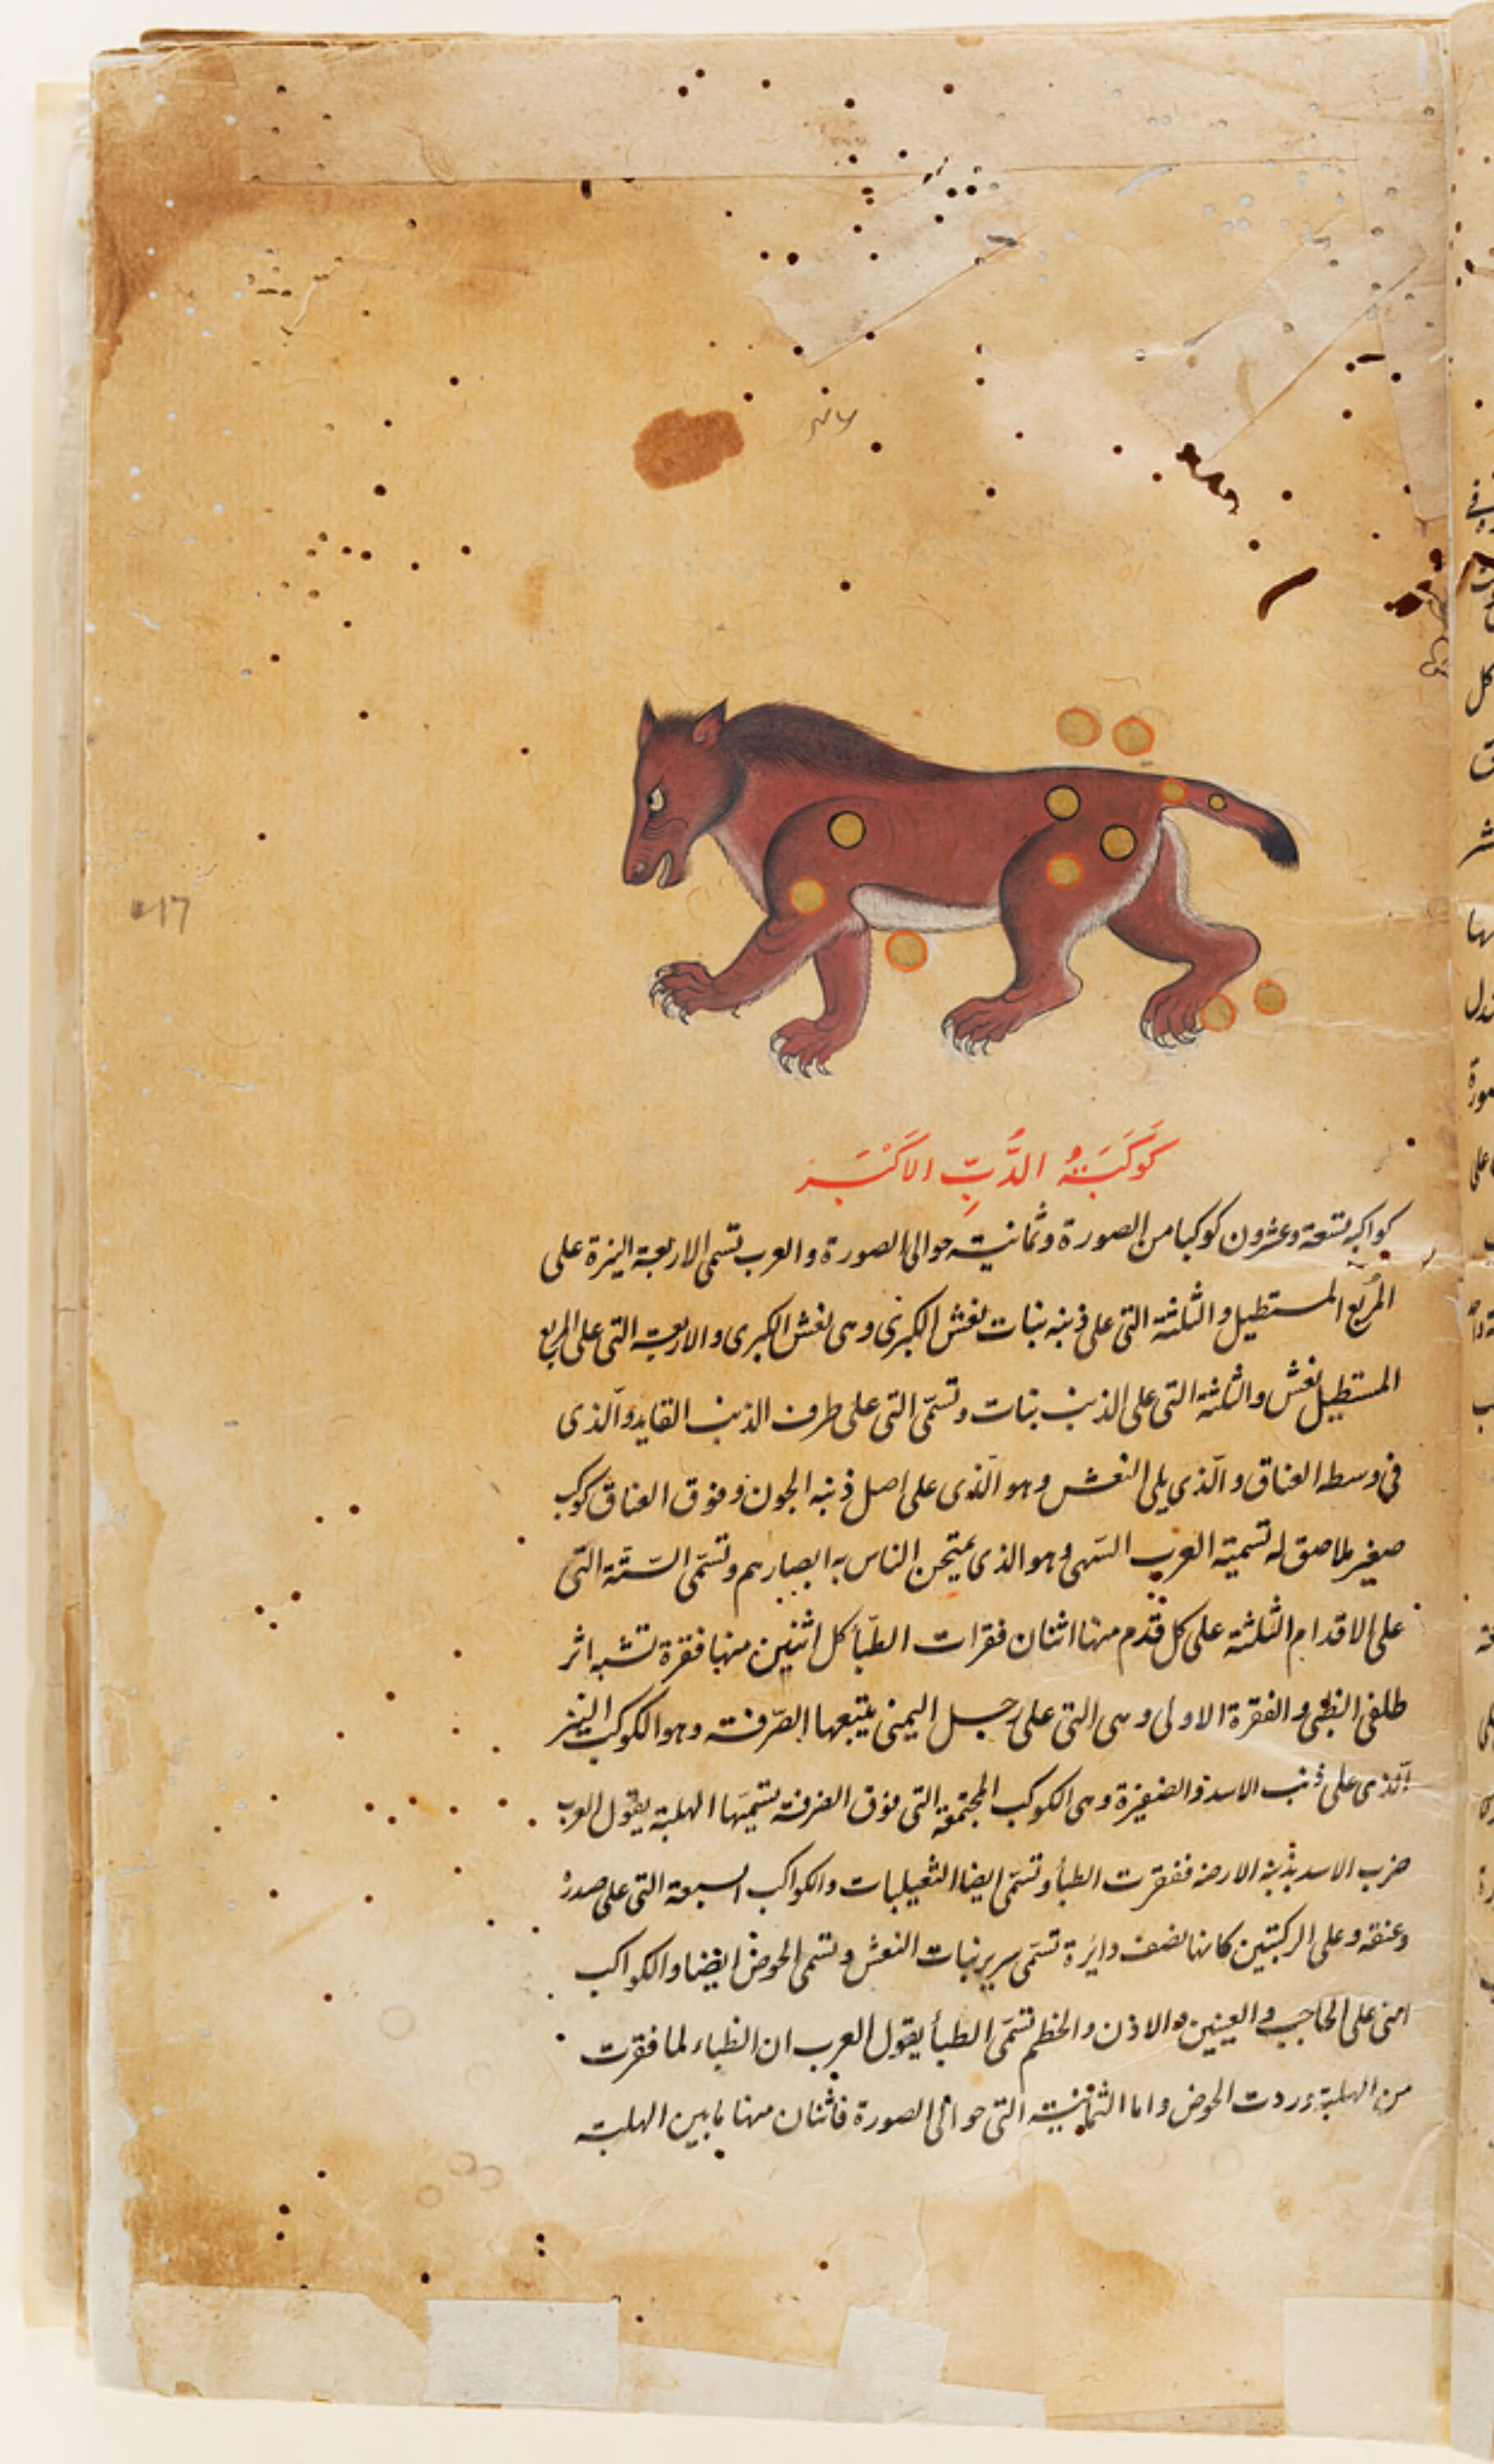 كَوكَبَةُ الدُّبِّ الاَكْبَر
كواكبه تسعة وعشرون كوكبا من الصورة وثمانية حوالى الصورة والعرب تسمى الاربعة النيرة على
المربع المستطيل والثلثة التى على ذنبه بنات نعش الكبرى وهى نعش الكبرى والاربعة التى على المربع
المستطيل نعش والثلثة التى على الذنب بنات وتسمّى التى على طرف الذنب القايد والّذى
فى وسطه العناق والّذى يلى النعش وهو الّذى على اصل ذنبه الجون وفوق العناق كوكب
صغير ملاصق له تسميه العرب السّهى وهو الذى يمتحن الناس به ابصارهم وتسمّى السّتّة التى
على الاقدام الثلثة على كل قدم منها اثنان فقرات الظبأ كل اثنين منها فقرة تشبه اثر
ظلفى الظبى والفقرة الاولى وهى التى على رجل اليمنى يتبعها الصّرفة وهو الكوكب النير
الّذى على ذنب الاسد والضفيرة وهى الكوكب المجتمعة التى فوق الصرفة يسميها الهلبة يقول العرب
ضرب الاسد بذنبه الارض فقفزت الظبأ وتسمّى ايضا الثعيلبات والكواكب السبعة التى على صدره
وعنقه وعلى الركبتين كانها نصف دايرة تسمّى سرير بنات النعش وتسمى الحوض ايضا والكواكب
التى على الحاجب والعينين والاذن والخطم تسمّى الظبأ يقول العرب ان الظباء لما فقرت
من الهلبة وردت الحوض واما الثمانية التى حوالى الصورة فاثنان منها ما بين الهلبة